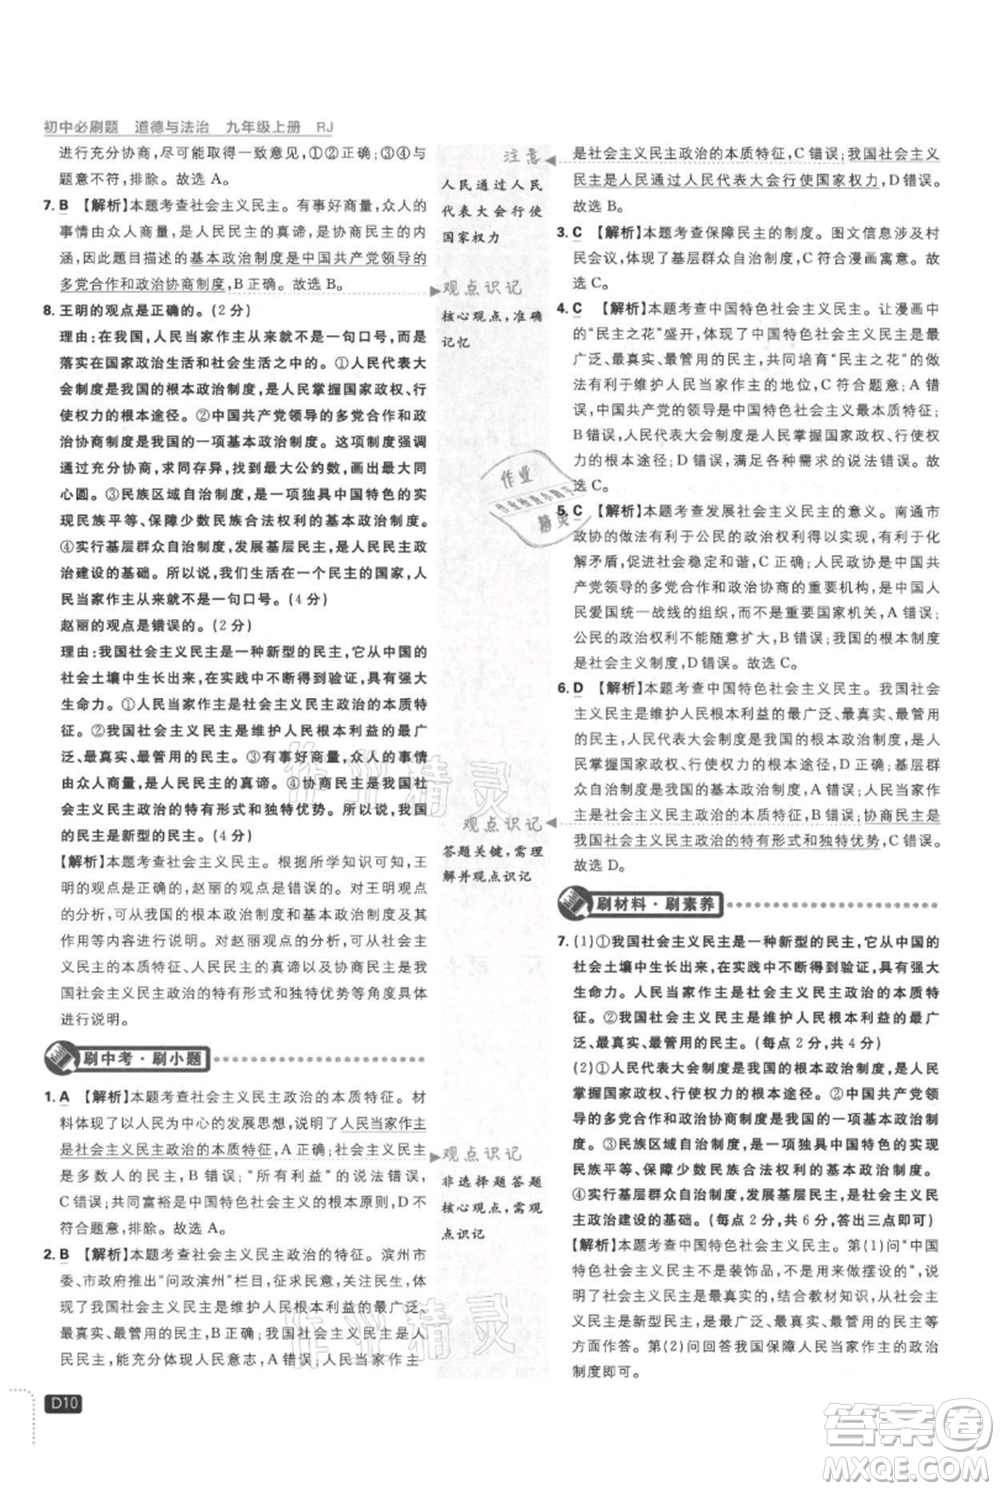 初中必刷题 道德与法治 九年级上册 RJ
进行充分协商,尽可能取得一致意见,①②正确;③④与
题意不符,排除。故选 A。
7. B 【解析】本题考查社会主义民主。有事好商量,众人的
事情由众人商量,是人民民主的真谛,是协商民主的内
涵,因此题目描述的基本政治制度是中国共产党领导的
多党合作和政治协商制度,B 正确。故选 B。
8. 王明的观点是正确的。(2 分)
理由:在我国,人民当家作主从来不是一句口号。而是
落实在国家政治生活和社会生活之中的。①人民代表大
会制度是我国的根本政治制度,是人民掌握国家政权、行
使权力的根本途径。②中国共产党领导的多党合作和政
治协商制度是我国的一项基本政治制度。这项制度强调
通过充分协商,寻求最大公约数,画出最大同
心圆。③民族区域自治制度,是一项独具中国特色的实现
民族平等、保障少数民族合法权利的基本政治制度。
④实行基层群众自治制度,是发展基层民主、社会主义政
治建设的基础。所以说,我国是一个民主的国家,人民
当家作主不是一句口号。(4 分)
赵丽的观点是错误的。(2 分)
理由:我国社会主义民主是一种新型的民主,它从中国的
社会土壤中生长出来,在实践中不断得到验证,具有强大
生命力。①人民当家作主是社会主义民主政治的本质特
征。②我国社会主义民主是维护人民根本利益的最广
泛、最真实、最管用的民主。③有事好商量,众人的事情
由众人商量,是人民民主的真谛。④协商民主是我国社
会主义民主政治的特有形式和独特优势。所以,我国的
民主是新型的民主。(4 分)
【解析】本题考查社会主义民主。根据所学知识可知,王
明的观点是正确的,赵丽的观点是错误的。对王明观点
的分析,可从我国的根本政治制度和基本政治制度等角
度进行说明。对赵丽观点的分析,可从我国社会主义民
主的本质特征、人民民主的真谛以及协商民主是我国社
会主义民主政治的特有形式和独特优势等角度
进行说明。
刷中考·刷小题
1. A 【解析】本题考查社会主义民主政治的本质特征。材
料体现了以人民为中心的发展思想,说明了人民当家作主
是社会主义民主政治的本质特征,A 正确;社会主义民主
是多数人的民主,B 错误;“所有利益”的说法太绝对,
C 错误;共同富裕是中国特色社会主义的根本原则,D 不
符合题意,排除。故选 A。
2. B 【解析】本题考查社会主义民主政治的特征。滨州市
委、市政府推出“问政滨州”栏目,征求民意,关注民生,体
现了我国社会主义民主是维护人民根本利益的最广泛、
最真实、最管用的民主,B 正确;我国社会主义民主的功
能,能充分体现人民意志,A 错误;人民当家作主
D10
注意
人民通过人民
代表大会行使
国家权力
观点识记
核心观点,准确
记忆
观点识记
答题关键,需理
解并观点识记
观点识记
非选择题答题
核心观点,需观
点识记
是社会主义民主政治的本质特征,C 错误;我国社会主义
民主是人民通过人民代表大会行使国家权力,D 错误。
故选 B。
3. C 【解析】本题考查保障民主的制度。图文信息涉及村
民会议,体现了基层群众自治制度,C 符合漫画寓意。故
选 C。
4. C 【解析】本题考查中国特色社会主义民主。让漫画中
的“民主之花”盛开,体现了中国特色社会主义民主是最
广泛、最真实、最管用的民主,共同培育“民主之花”的做
法有利于维护人民当家作主的地位,C 符合题意;中国共
产党的领导是中国特色社会主义最本质的特征,A
错误;人民掌握国家政权、行使权力的根本
途径,B 错误;满足各种需求的说法太绝对,D 错误。故
选 C。
5. C 【解析】本题考查发展社会主义民主的意义。南通市
政协的做法有利于公民的政治权利得到落实,有利于公
平正义,促进社会稳定和谐,C 正确;人民政协是中国共
产党领导的多党合作和政治协商的重要机构,是中国人
民爱国统一战线的组织,而不是国家机关,A 错误;
公民的政治权利不能随意扩大,B 错误;我国的根本制度
是社会主义制度,D 错误。故选 C。
6. D 【解析】本题考查中国特色社会主义民主。我国社会
主义民主是维护人民根本利益的最广泛、
最真实、最管用的民主,C 错误;人民代表大会制度是
人民掌握国家政权、行使权力的根本途径,B 错误;基层
群众自治制度是发展基层民主的基本制度,A 错误;人民当家
作主是社会主义民主政治的本质特征;协商民主是
我国社会主义民主政治的特有形式和独特优势,D 正确。
故选 D。
刷材料·刷素养
7. (1)①我国社会主义民主是一种新型的民主,它从中国的
社会土壤中生长出来,在实践中不断得到验证,具有强大
生命力。人民当家作主是社会主义民主政治的本质特
征。②我国社会主义民主是维护人民根本利益的最广
泛、最真实、最管用的民主。(每点 2 分,共 4 分)
(2)①人民代表大会制度是我国的根本政治制度,是人民
掌握国家政权、行使权力的根本途径。②中国共产党领导
的多党合作和政治协商制度是我国的一项基本政治制
度。③民族区域自治制度,是一项独具中国特色的实现
民族平等、保障少数民族合法权利的基本政治制度。
④实行基层群众自治制度,是发展基层民主、社会主义民
主政治建设的基础。(每点 2 分,共 6 分,答出三点即可)
【解析】本题考查中国特色社会主义民主。第(1)问“中国
特色社会主义民主不是装饰品,不是用来做摆设的”,可
结合教材知识,从我国社会主义民主是新型民主、我国
社会主义民主是维护人民根本利益的最广泛的民主等
方面作答。第(2)问回答我国保障人民当家作主的政治
制度即可。
作业精灵
作业精灵
作业
精灵
答案卷
MXQE.COM